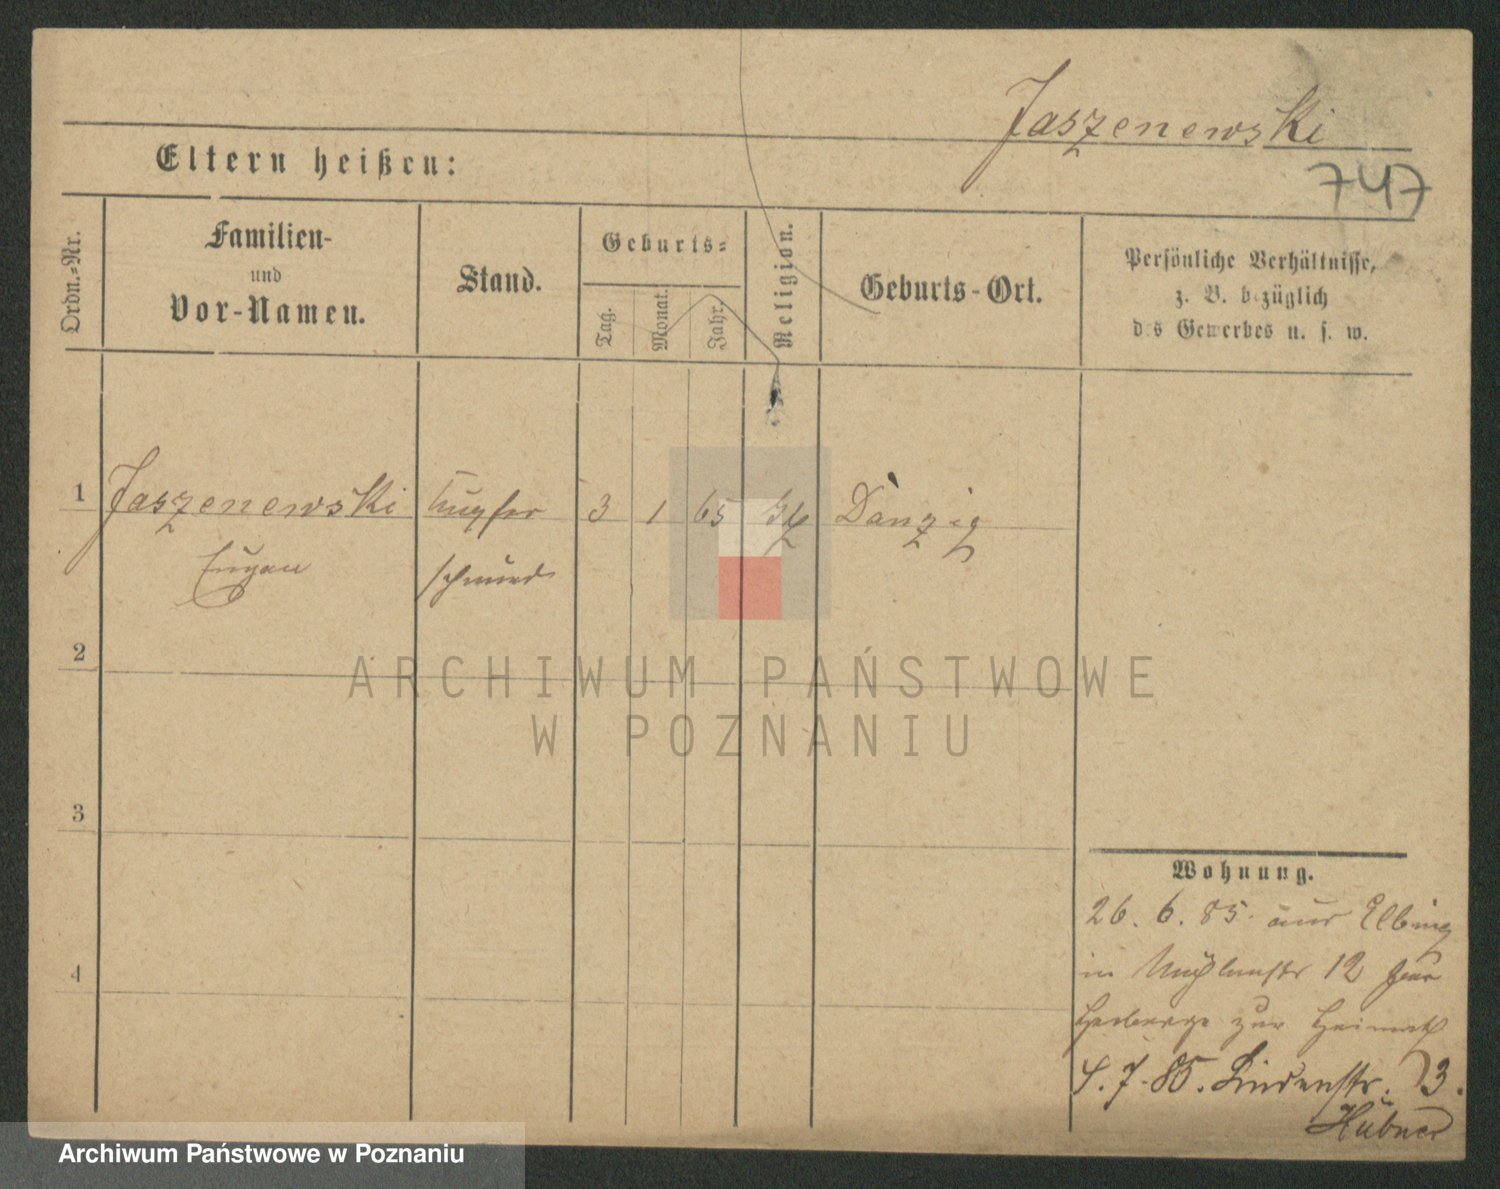 Jaszenewski
747
Eltern heißen:
Ordn.-Nr.
Familien-
und
Vor-Namen.
Stand.
Geburts-
Tag.
Monat.
Jahr.
Religion.
Geburts-Ort.
Persönliche Verhältnisse,
z. B. bezüglich
des Gewerbes u. s. w.
1 Jaszenewski Kupfer 3 1 65 Danzig
Eugen schmied
2
ARCHIWUM PAŃSTWOWE
W POZNANIU
3
4
Wohnung.
26. 6. 85. aus Elbing
in Mühlenstr 12
Herberge zur Heimath
7. 85. Lindenstr. 3.
Hübner
Archiwum Państwowe w Poznaniu